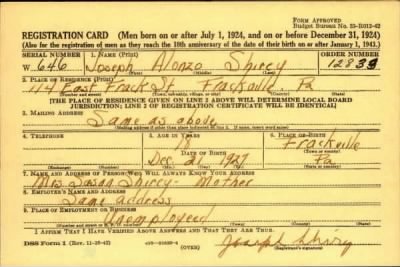 FORM APPROVED
Budget Bureau No. 33-R012-42
REGISTRATION CARD (Men born on or after July 1, 1924, and on or before December 31, 1924)
(Also for the registration of men as they reach the 18th anniversary of the date of their birth on or after January 1, 1943.)
SERIAL NUMBER
1. NAME (Print)
ORDER NUMBER
W 646
Joseph Alonzo Shirey
12839
(First) (Middle) (Last)
2. PLACE OF RESIDENCE (Print)
114 East Frack St. Frackville Pa
(Number and street) (Town, township, village, or city) (County) (State)
[THE PLACE OF RESIDENCE GIVEN ON LINE 2 ABOVE WILL DETERMINE LOCAL BOARD
JURISDICTION; LINE 2 OF REGISTRATION CERTIFICATE WILL BE IDENTICAL]
3. MAILING ADDRESS
Same as above
4. TELEPHONE
5. AGE IN YEARS
6. PLACE OF BIRTH
18
Frackville
DATE OF BIRTH
(Town or county)
Dec. 1927
Pa
(Exchange) (Number)
(Mo.) (Day) (Yr.)
(State or country)
7. NAME AND ADDRESS OF PERSON WHO WILL ALWAYS KNOW YOUR ADDRESS
Mrs Susan Shirey - Mother
8. EMPLOYER'S NAME AND ADDRESS
Same address
9. PLACE OF EMPLOYMENT OR BUSINESS
Unemployed
(Number and street or R. F. D. number) (Town) (County) (State)
I AFFIRM THAT I HAVE VERIFIED ABOVE ANSWERS AND THAT THEY ARE TRUE.
DSS Form 1
Joseph Shirey